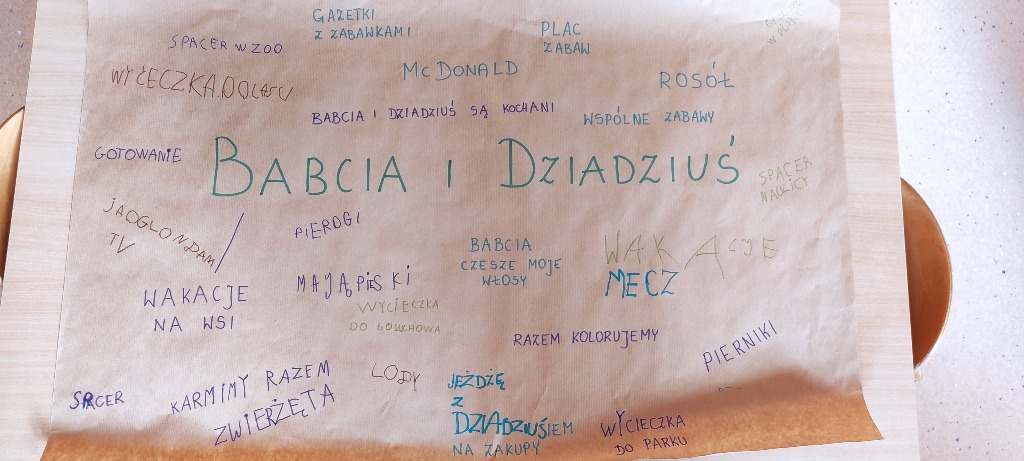 GAZETKI
Z ZABAWKAMI
PLAC
ZABAW
SPACER W ZOO
MCDONALD
ROSÓŁ
WYCECZKA DO LASU
BABCIA I DZIADZIUŚ SĄ KOCHANI
WSPÓLNE ZABAWY
GOTOWANIE
BABCIA I DZIADZIUŚ
SPACER
NAULICY
JAOGLONDAM
TV
PIEROGI
BABCIA
CZESZE MOJE
WŁOSY
WAKACJE
MECZ
WAKACJE
NA WSI
MAJĄ PIESKI
WYCIECZKA
DO GOŁUCHOWA
RAZEM KOLORUJEMY
PIERNIKI
SPACER
KARMIMY RAZEM
ZWIERZĘTA
LODY
JEŻDŻĘ
Z
DZIADZIUSIEM
NA ZAKUPY
WYCIECZKA
DO PARKU